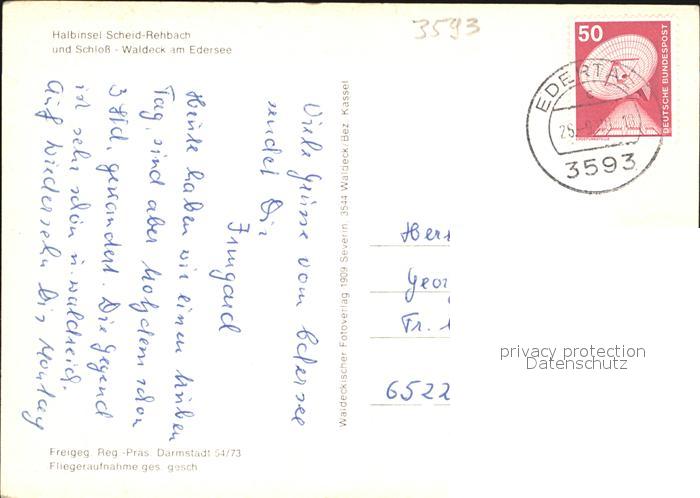 Halbinsel Scheid-Rehbach
und Schloß - Waldeck am Edersee
3593
50
DEUTSCHE BUNDESPOST
EDERTAL
3593
Viele Grüsse vom Edersee
sendet Dir
Irmgard
Heute haben wir einen trüben
Tag, sind aber trotzdem schon
3 Std. gewandert. Die Gegend
ist sehr schön u. waldreich.
Auf Wiedersehn bis Montag
Waldeckischer Fotoverlag 1909 Severin, 3544 Waldeck/Bez. Kassel
Herr
Geor
Fr.
6522
privacy protection
Datenschutz
Freigeg. Reg.-Präs. Darmstadt 54/73
Fliegeraufnahme ges. gesch